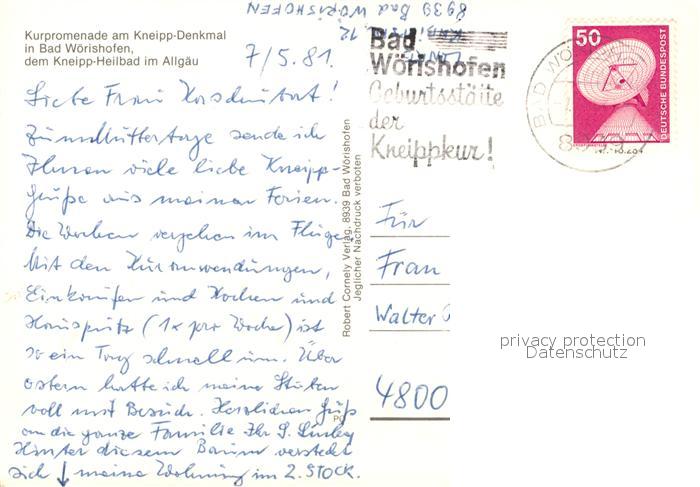 Kurpromenade am Kneipp-Denkmal
in Bad Wörishofen,
dem Kneipp-Heilbad im Allgäu
7/5.81.
Liebe Frau
Zum Muttertage sende ich
Ihnen viele liebe Kneipp-
Grüße aus meinen Ferien.
Die Wochen vergehen im Fluge,
Mit den Kuranwendungen,
Einkaufen und Kochen und
Hausputz (1x pro Woche) ist
so ein Tag schnell um. Über
Ostern hatte ich meine Stuben
voll mit Besuch. Herzlichen Gruß
an die ganze Familie Ihr G.
Hinter diesem Baum versteckt
sich ↓ meine Wohnung im 2. STOCK.
8939 Bad WÖRISHOFEN
12
Robert Cornely Verlag, 8939 Bad Wörishofen
Jeglicher Nachdruck verboten
PC
Bad
Wörishofen
Geburtsstätte
der
Kneippkur!
50
DEUTSCHE BUNDESPOST
BAD WÖ
Für
Frau
Walter
4800
privacy protection
Datenschutz